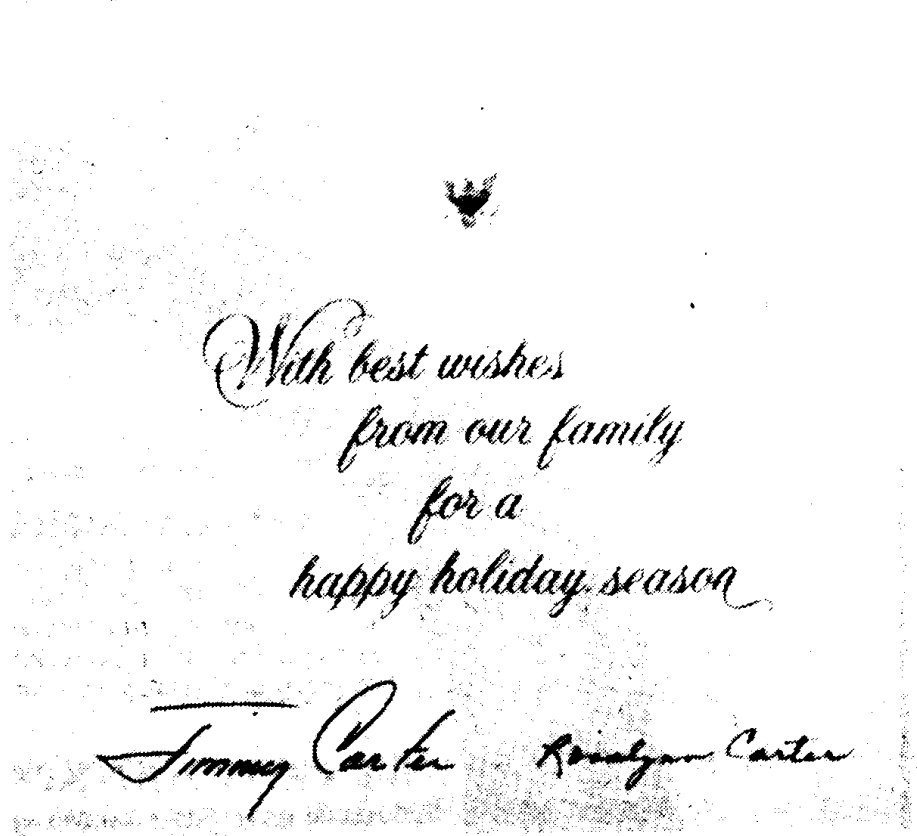 With best wishes
from our family
for a
happy holiday season
Jimmy Carter Rosalynn Carter